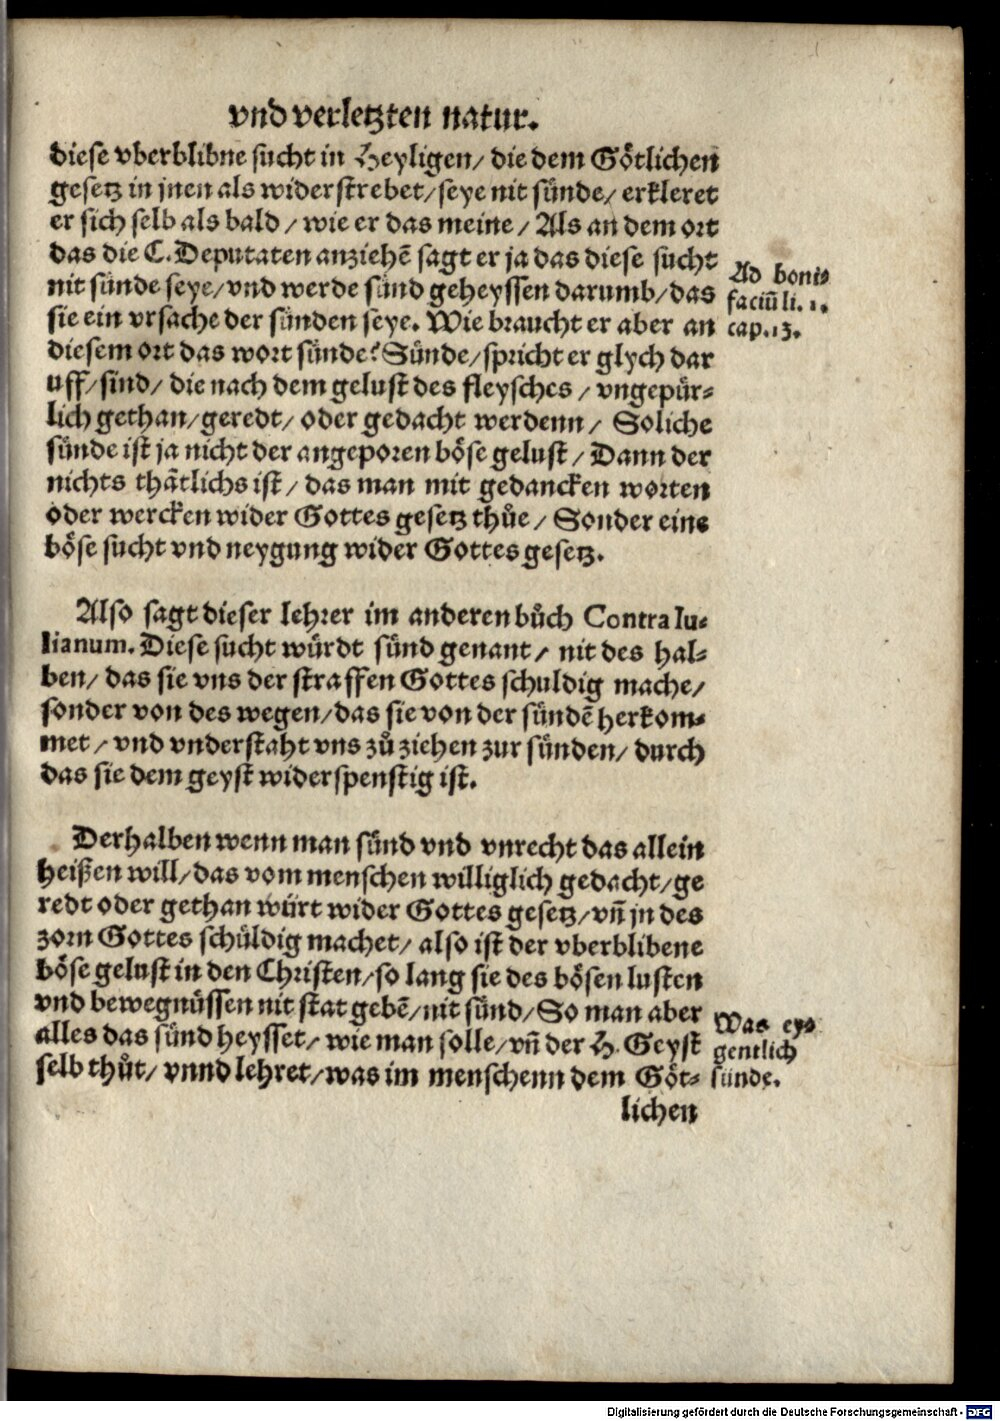 vnd verletzten natur.
diese vberblibne sucht in Heyligen/ die dem Gôtlichen
gesetz in jnen als widerstrebet/ seye nit sünde/ erkleret
er sich selb als bald/ wie er das meine/ Als an dem ort
das die C. Deputaten anziehẽ sagt er ja das diese sucht
nit sünde seye/ vnd werde sünd geheyssen darumb/ das
sie ein vrsache der sünden seye. Wie braucht er aber an
diesem ort das wort sünde? Sünde/ spricht er glych dar
uff/ sind/ die nach dem gelust des fleysches/ vngepür-
lich gethan/ geredt/ oder gedacht werdenn/ Soliche
sünde ist ja nicht der angeporen böse gelust/ Dann der
nichts thätlichs ist/ das man mit gedancken worten
oder wercken wider Gottes gesetz thůe/ Sonder eine
böse sucht vnd neygung wider Gottes gesetz.
Ad boni-
faciũ li. 1.
cap. 13.
Also sagt dieser lehrer im anderen bůch Contra Iu-
lianum. Diese sucht würdt sünd genant/ nit des hal-
ben/ das sie vns der straffen Gottes schuldig mache/
sonder von des wegen/ das sie von der sündẽ herkom-
met/ vnd vnderstaht vns zů ziehen zur sünden/ durch
das sie dem geyst widerspenstig ist.
Derhalben wenn man sünd vnd vnrecht das allein
heißen will/ das vom menschen williglich gedacht/ ge
redt oder gethan würt wider Gottes gesetz/ vñ jn des
zorn Gottes schüldig machet/ also ist der vberblibene
böse gelust in den Christen/ so lang sie des bösen lusten
vnd bewegnüssen nit stat gebẽ/ nit sünd/ So man aber
alles das sünd heysset/ wie man solle/ vñ der H. Geyst
selb thůt/ vnnd lehret/ was im menschenn dem Göt-
Was ey-
gentlich
sünde.
lichen
Digitalisierung gefördert durch die Deutsche Forschungsgemeinschaft - DFG